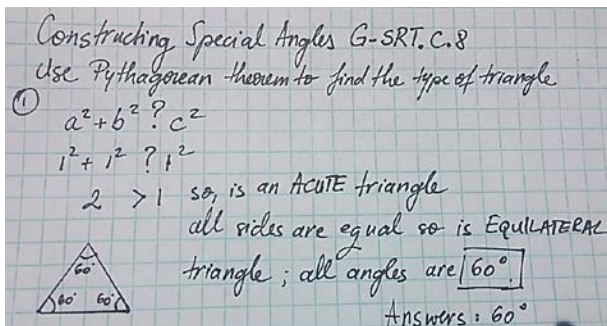 Constructing Special Angles G-SRT.C.8
Use Pythagorean theorem to find the type of triangle
① a² + b² ? c²
1² + 1² ? 1²
2 > 1 so, is an ACUTE triangle
all sides are equal so is EQUILATERAL
triangle; all angles are 60°.
60°
60° 60°
Answers: 60°